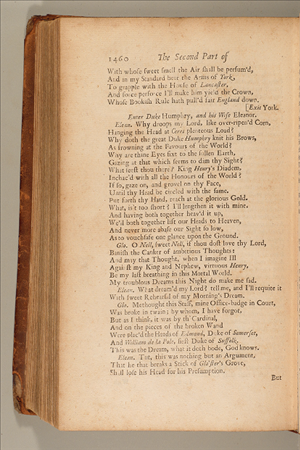 1460 The Second Part of
With whose sweet smell the Air shall be perfum'd,
And in my Standard bear the Arms of York,
To grapple with the House of Lancaster,
And force perforce I'll make him yield the Crown,
Whose Bookish Rule hath pull'd fair England down.
[Exit York.
Enter Duke Humphry, and his Wife Eleanor.
Elean. Why droops my Lord, like over-ripen'd Corn,
Hanging the Head at Ceres plenteous Load?
Why doth the great Duke Humphry knit his Brows,
As frowning at the Favours of the World?
Why are thine Eyes fixt to the sullen Earth,
Gazing at that which seems to dim thy Sight?
What seest thou there? King Henry's Diadem,
Inchac'd with all the Honours of the World?
If so, gaze on, and grovel on thy Face,
Until thy Head be circled with the same.
Put forth thy Hand, reach at the glorious Gold.
What, is't too short? I'll lengthen it with mine.
And having both together heav'd it up,
We'll both together lift our Heads to Heaven,
And never more abase our Sight so low,
As to vouchsafe one glance upon the Ground.
Glo. O Nell, sweet Nell, if thou dost love thy Lord,
Banish the Canker of ambitious Thoughts:
And may that Thought, when I imagine Ill
Against my King and Nephew, virtuous Henry,
Be my last breathing in this Mortal World.
My troublous Dreams this Night do make me sad.
Elean. What dream'd my Lord? tell me, and I'll requite it
With sweet Rehearsal of my Morning's Dream.
Glo. Methought this Staff, mine Office-badge in Court,
Was broke in twain; by whom, I have forgot,
But as I think, it was by th' Cardinal,
And on the pieces of the broken Wand
Were plac'd the Heads of Edmond, Duke of Somerset,
And William de la Pole, first Duke of Suffolk,
This was the Dream, what it doth bode, God knows.
Elean. Tut, this was nothing but an Argument,
That he that breaks a Stick of Glo'ster's Grove,
Shall lose his Head for his Presumption.
But